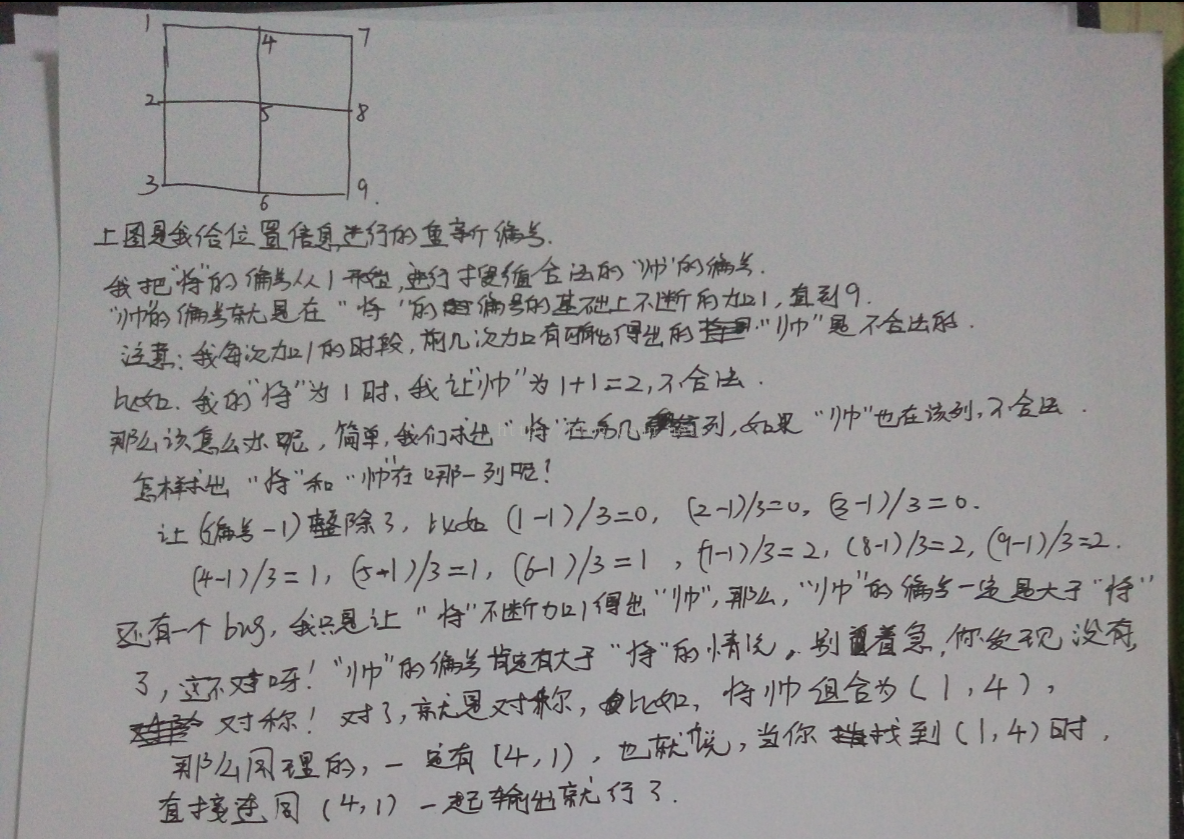 1 4 7
2 5 8
3 6 9.
上图是我给位置信息进行的重新编号.
我把"将"的编号从1开始,进行搜值合法的"帅"的编号.
"帅"的编号就是在"将"的编号的基础上不断的加1,直到9.
注意:我每次加1的时段,前几次加有可能得出的"帅"是不合法的.
比如.我的"将"为1时,我让"帅"为1+1=2,不合法.
那么该怎么办呢,简单,我们求出"将"在第几列,如果"帅"也在该列,不合法.
怎样求出"将"和"帅"在哪一列呢!
让(编号-1)整除3,比如(1-1)/3=0,(2-1)/3=0,(3-1)/3=0.
(4-1)/3=1,(5-1)/3=1,(6-1)/3=1,(7-1)/3=2,(8-1)/3=2,(9-1)/3=2.
还有一个bug,我只是让"将"不断加1得出"帅",那么,"帅"的编号一定是大于"将"
了,这不对呀!"帅"的编号肯定有大于"将"的情况。别着急,你发现没有,
对称!对了,就是对称,比如,将帅组合为(1,4),
那么同理的,一定有(4,1),也就说,当你找到(1,4)时,
直接连同(4,1)一起输出就行了.